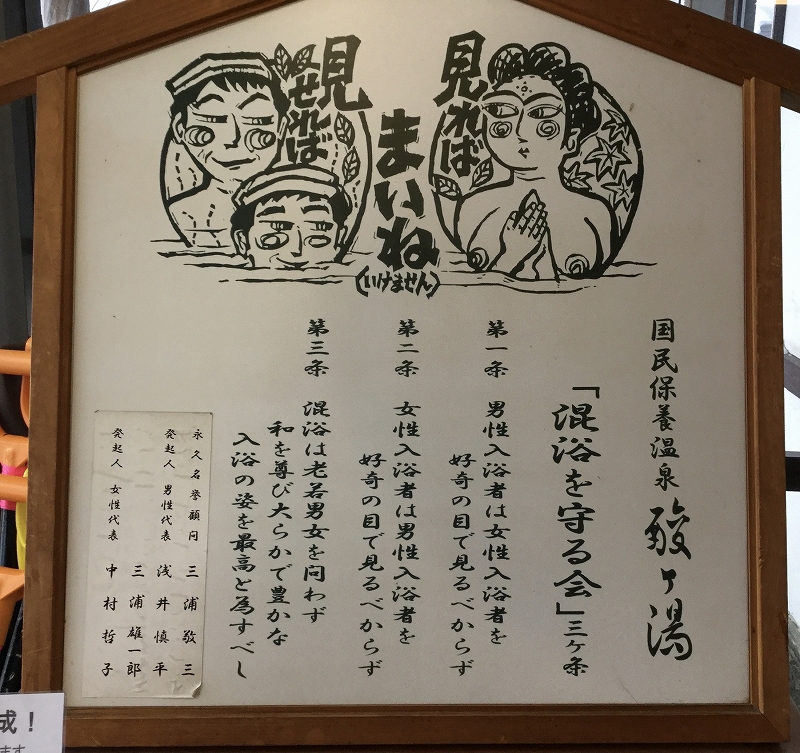 見れば
まいね
(いけません)
見せれば
国民保養温泉 酸ヶ湯
「混浴を守る会」三ヶ条
第一条 男性入浴者は女性入浴者を
好奇の目で見るべからず
第二条 女性入浴者は男性入浴者を
好奇の目で見るべからず
第三条 混浴は老若男女を問わず
和を尊び大らかで豊かな
入浴の姿を最高と為すべし
永久名誉顧問 三浦敬三
発起人 男性代表 浅井慎平
三浦雄一郎
発起人 女性代表 中村哲子
成!
ます